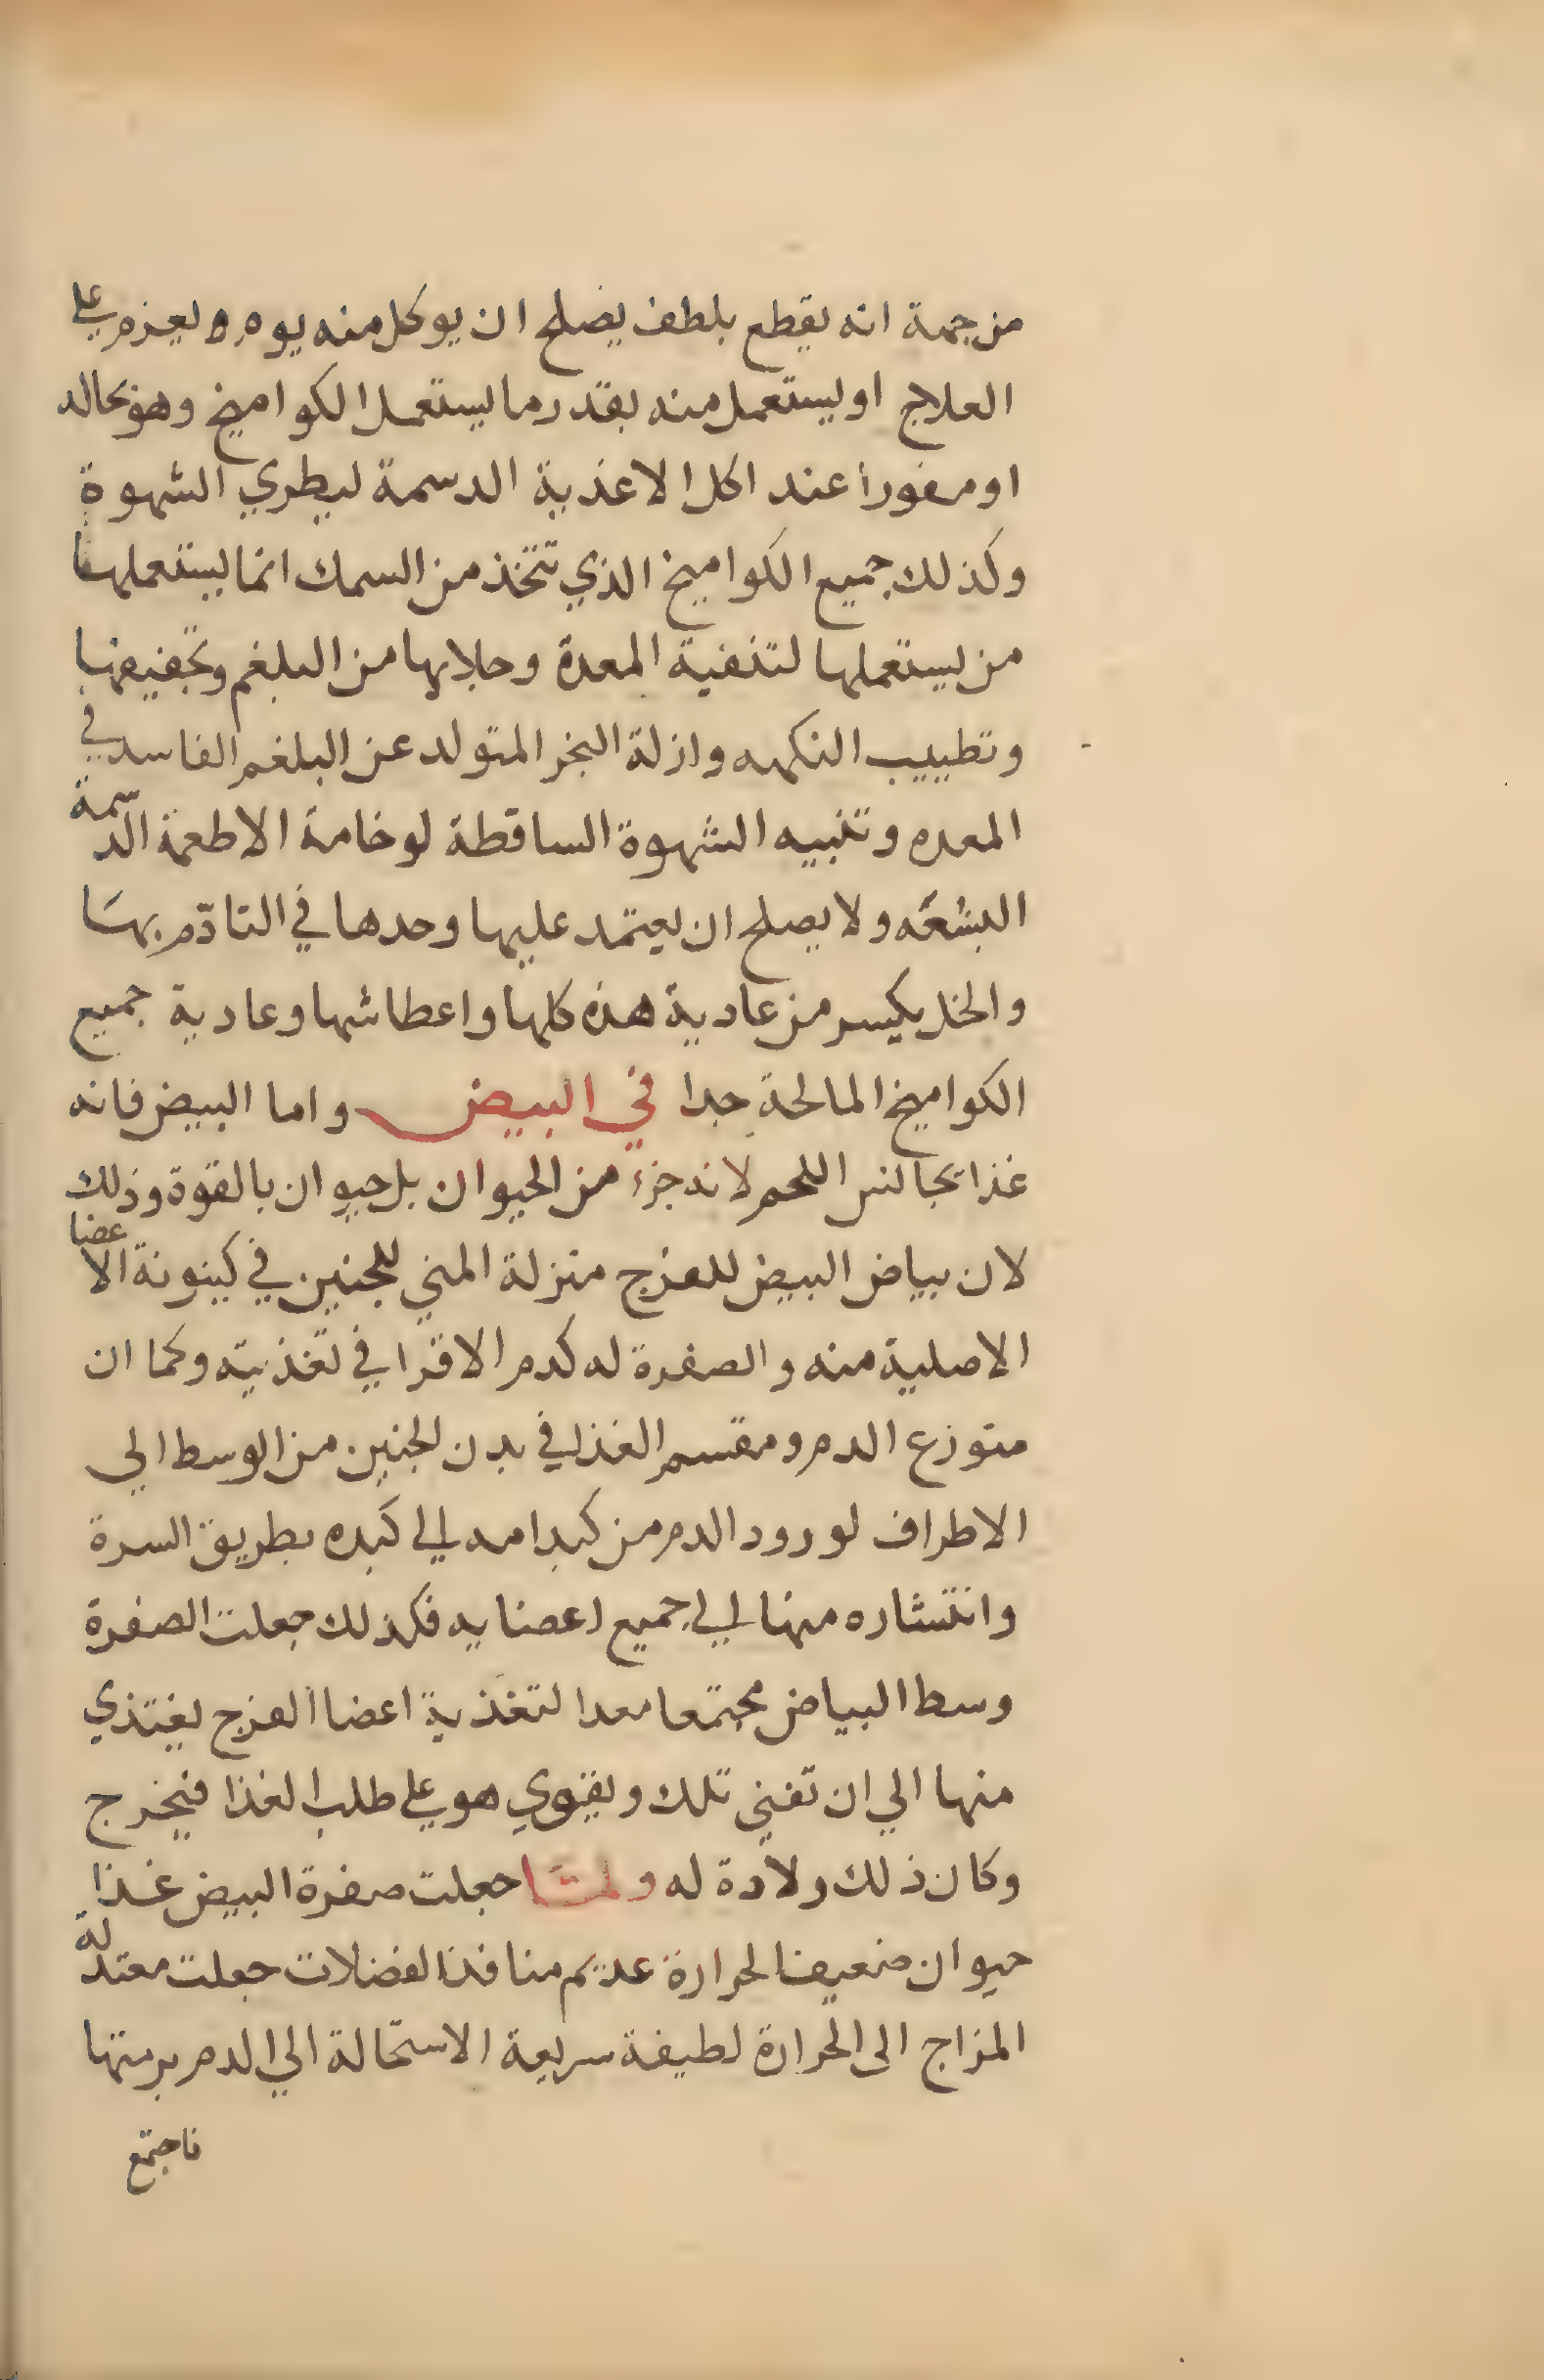 من جهة انه يقطع بلطف يصلح ان يوكل منه يوم يعزم على
العلاج او يستعمل منه بقدر ما يستعمل الكواميخ وهو بحاله
او مغورا عند اكل الاغذية الدسمة ليطري الشهوة
وكذلك جميع الكواميخ الذي تتخذ من السمك انما يستعملها
من يستعملها لتنقية المعدة وجلايها من البلغم وتجفيفها
وتطييب النكهه وازلة البخر المتولد عن البلغم الفاسد في
المعده وتنبيه الشهوة الساقطة لوخامة الاطعمة الدسمة
البشعه ولا يصلح ان يعتمد عليها وحدها في التادّم بها
والخل يكسر من عادية هذه كلها واعطاشها وعادية جميع
الكواميخ المالحة جدا في البيض واما البيض فانه
غذا يجانس اللحم لانه جزء من الحيوان بل حيوان بالقوة وذلك
لان بياض البيض للفرج منزلة المني للجنين في كينونة الاعضا
الاصلية منه والصفرة له كدم الاقرا في تغذيته وكما ان
متوزع الدم ومقسم الغذا في بدن الجنين من الوسط الي
الاطراف لورود الدم من كبد امه الي كبده بطريق السرة
وانتشاره منها الي جميع اعضايه فكذلك جعلت الصفرة
وسط البياض مجتمعا معدا لتغذية اعضا الفرج يغتذي
منها الي ان تفني تلك ويقوي هو علي طلب الغذا فيخرج
وكان ذلك ولادة له ولما جعلت صفرة البيض غذا
حيوان ضعيف الحرارة عديم منافذ الفضلات جعلت معتدلة
المزاج الى الحرارة لطيفة سريعة الاستحالة الي الدم برمتها
فاجتمع